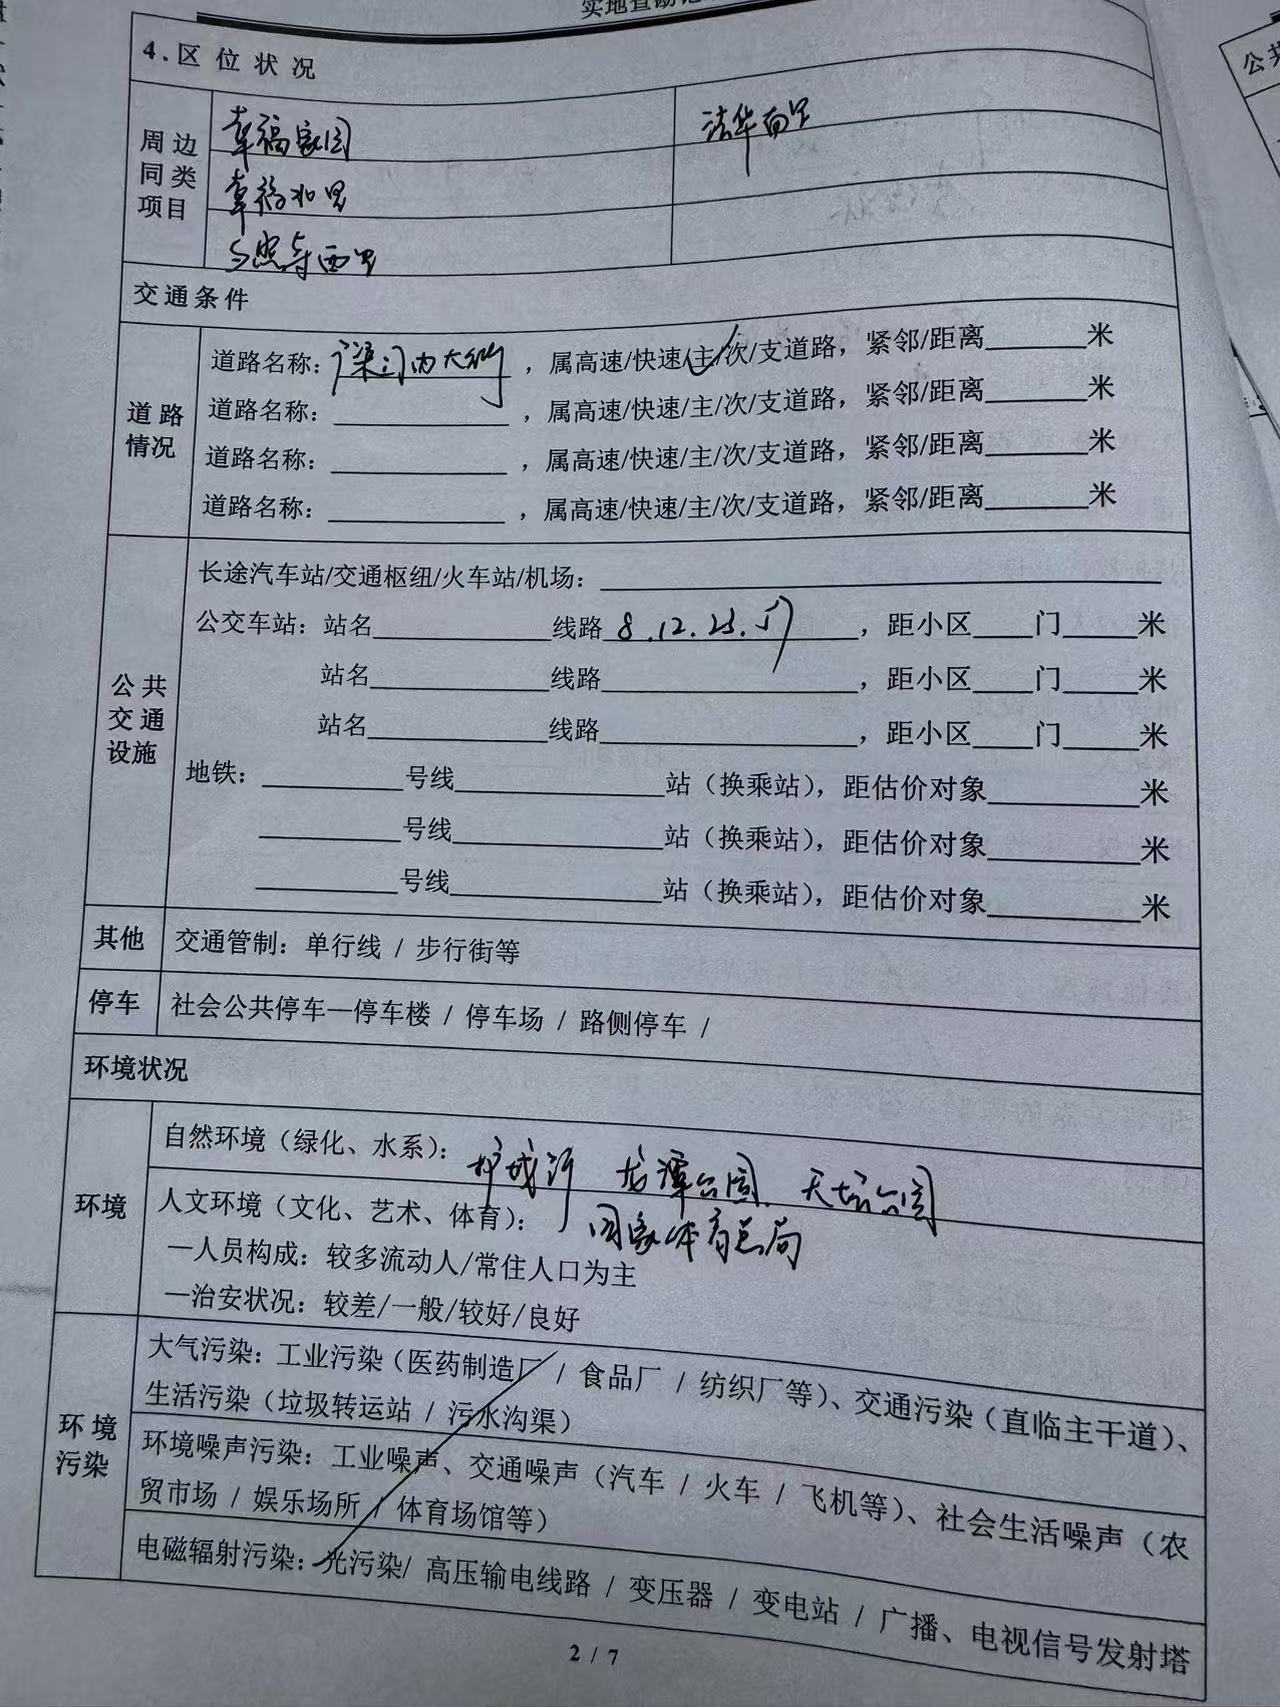 实地查勘记
4.区位状况
周边同类项目
幸福家园
法华南里
幸福北里
夕照寺西里
交通条件
道路情况
道路名称：广渠门内大街，属高速/快速/主/次/支道路，紧邻/距离______米
道路名称：______，属高速/快速/主/次/支道路，紧邻/距离______米
道路名称：______，属高速/快速/主/次/支道路，紧邻/距离______米
道路名称：______，属高速/快速/主/次/支道路，紧邻/距离______米
公共交通设施
长途汽车站/交通枢纽/火车站/机场：______
公交车站：站名______线路8.12.23.57，距小区____门____米
站名______线路______，距小区____门____米
站名______线路______，距小区____门____米
地铁：______号线______站（换乘站），距估价对象______米
______号线______站（换乘站），距估价对象______米
______号线______站（换乘站），距估价对象______米
其他
交通管制：单行线 / 步行街等
停车
社会公共停车—停车楼 / 停车场 / 路侧停车 /
环境状况
环境
自然环境（绿化、水系）：护城河 龙潭公园 天坛公园
人文环境（文化、艺术、体育）：国家体育总局
—人员构成：较多流动人/常住人口为主
—治安状况：较差/一般/较好/良好
环境污染
大气污染：工业污染（医药制造厂 / 食品厂 / 纺织厂等）、交通污染（直临主干道）、
生活污染（垃圾转运站 / 污水沟渠）
环境噪声污染：工业噪声、交通噪声（汽车 / 火车 / 飞机等）、社会生活噪声（农
贸市场 / 娱乐场所 / 体育场馆等）
电磁辐射污染：光污染/ 高压输电线路 / 变压器 / 变电站 / 广播、电视信号发射塔
2 / 7
公共